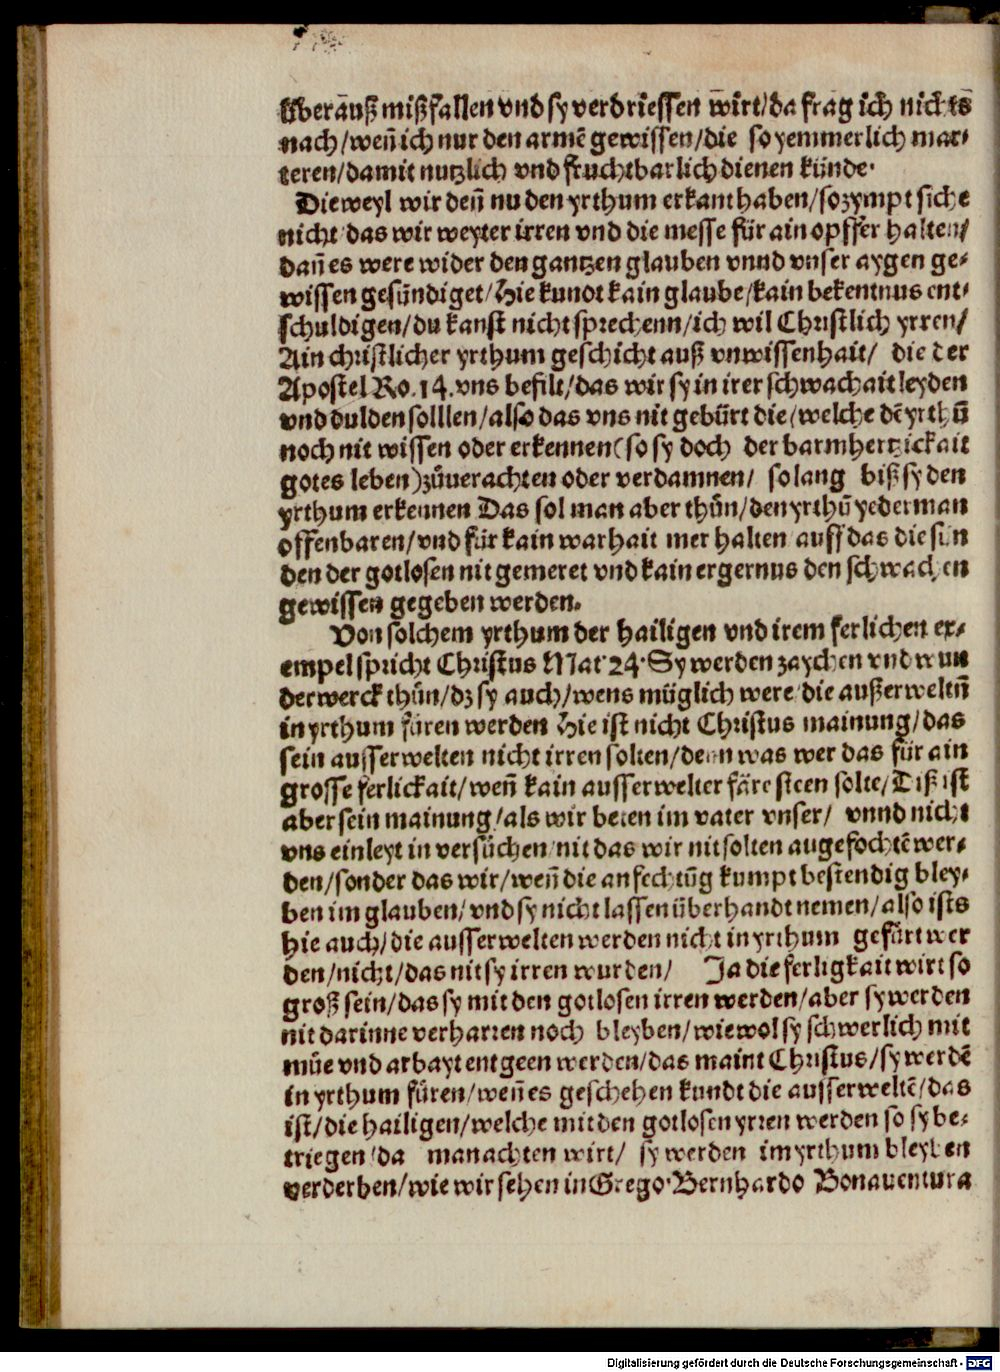 überauß mißfallen vnd sy verdriessen wirt/da frag ich nichts
nach/weñ ich nur den armē gewissen/die so yemmerlich mar⸗
teren/damit nutzlich vnd fruchtbarlich dienen künde.
Dieweyl wir deñ nu den yrthum erkant haben/so zympt siche
nicht das wir weyter irren vnd die messe für ain opffer halten/
dañ es were wider den gantzen glauben vnnd vnser aygen ge⸗
wissen gesündiget/Hie kundt kain glaube/kain bekentnus ent⸗
schuldigen/du kanst nicht sprechenn/ich wil Christlich yrren/
Ain christlicher yrthum geschicht auß vnwissenhait/ die der
Apostel Ro.14.vns befilt/das wir sy in irer schwachait leyden
vnd dulden solllen/also das vns nit gebürt die/welche dē yrthū
noch nit wissen oder erkennen(so sy doch der barmhertzickait
gotes leben)zůuerachten oder verdamnen/ so lang biß sy den
yrthum erkennen Das sol man aber thůn/den yrthū yederman
offenbaren/vnd für kain warhait mer halten auff das die sün
den der gotlosen nit gemeret vnd kain ergernus den schwachen
gewissen gegeben werden.
Von solchem yrthum der hailigen vnd irem ferlichen ex⸗
empel spricht Christus Mat 24. Sy werden zaychen vnd wun
derwerck thůn/dz sy auch/wens müglich were die außerweltñ
in yrthum füren werden Hie ist nicht Christus mainung/das
sein ausserwelten nicht irren solten/denn was wer das für ain
grosse ferlickait/weñ kain ausserwelter färe steen solte/Diß ist
aber sein mainung/als wir beten im vater vnser/ vnnd nicht
vns einleyt in versůchen/nit das wir nit solten angefochtē wer⸗
den/sonder das wir/weñ die anfechtūg kumpt bestendig bley⸗
ben im glauben/vnd sy nicht lassen überhandt nemen/also ists
hie auch/die ausserwelten werden nicht in yrthum gefürt wer
den/nicht/das nit sy irren wurden/ Ja die ferligkait wirt so
groß sein/das sy mit den gotlosen irren werden/aber sy werden
nit darinne verharren noch bleyben/wiewol sy schwerlich mit
müe vnd arbayt entgeen werden/das maint Christus/sy werdē
in yrthum füren/weñ es geschehen kundt die ausserweltē/das
ist/die hailigen/welche mit den gotlosen yrren werden so sy be⸗
triegen/da man achten wirt/ sy werden im yrthum bleyben
verderben/wie wir sehen in Grego.Bernhardo Bonauentura
Digitalisierung gefördert durch die Deutsche Forschungsgemeinschaft - DFG